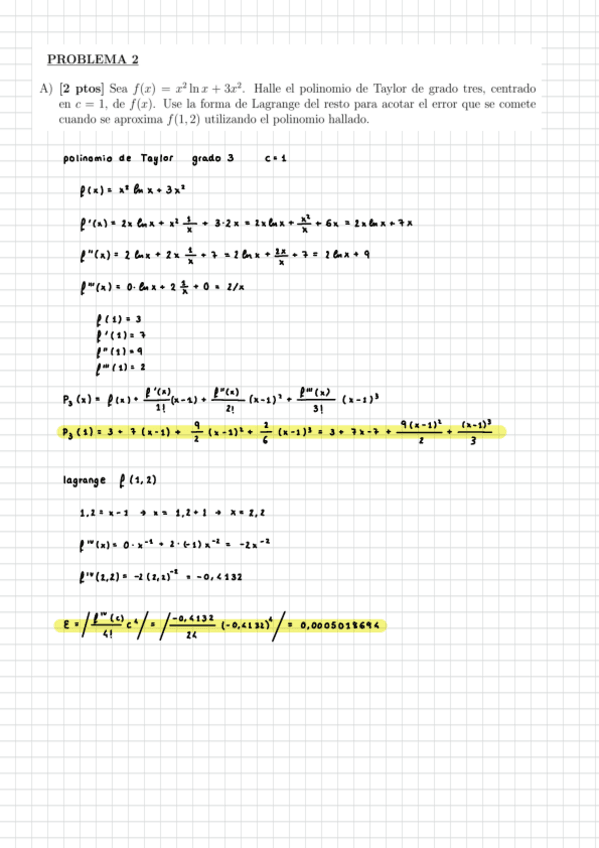 PROBLEMA 2
A) [2 ptos] Sea f(x) = x² ln x + 3x². Halle el polinomio de Taylor de grado tres, centrado
en c = 1, de f(x). Use la forma de Lagrange del resto para acotar el error que se comete
cuando se aproxima f(1, 2) utilizando el polinomio hallado.
polinomio de Taylor grado 3 c=1
f(x) = x² ln x + 3x²
f'(x) = 2x ln x + x² 1/x + 3·2x = 2x ln x + x²/x + 6x = 2x ln x + 7x
f''(x) = 2 ln x + 2x 1/x + 7 = 2 ln x + 2x/x + 7 = 2 ln x + 9
f'''(x) = 0· ln x + 2 1/x + 0 = 2/x
f(1) = 3
f'(1) = 7
f''(1) = 9
f'''(1) = 2
P₃(x) = f(x) + f'(x)/1! (x-1) + f''(x)/2! (x-1)² + f'''(x)/3! (x-1)³
P₃(1) = 3 + 7(x-1) + 9/2 (x-1)² + 2/6 (x-1)³ = 3 + 7x-7 + 9(x-1)²/2 + (x-1)³/3
lagrange f(1,2)
1,2 = x-1 → x = 1,2+1 → x = 2,2
f'ᵛ(x) = 0·x⁻¹ + 2·(-1)x⁻² = -2x⁻²
f'ᵛ(2,2) = -2(2,2)⁻² = -0,4132
E = /f'ᵛ(c)/4! c⁴/ = /-0,4132/24 (-0,4132)⁴/ = 0,0005018694